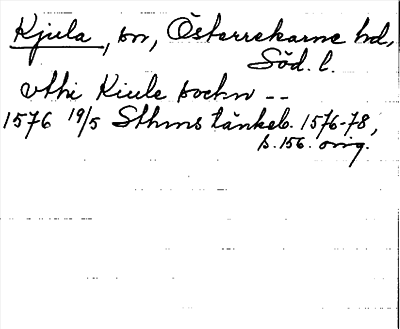 Kjula, sn, Österrekarne hd,
Söd. l.
vthi Kiule sockn --
1576 19/5 Sthms tänkeb. 1576-78,
s. 156. orig.